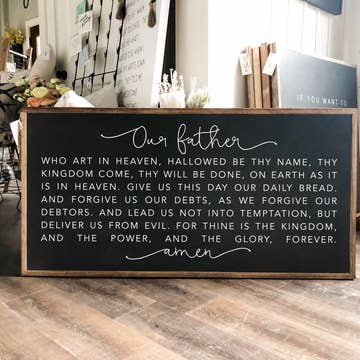 Our father
WHO ART IN HEAVEN, HALLOWED BE THY NAME, THY
KINGDOM COME, THY WILL BE DONE, ON EARTH AS IT
IS IN HEAVEN. GIVE US THIS DAY OUR DAILY BREAD.
AND FORGIVE US OUR DEBTS, AS WE FORGIVE OUR
DEBTORS. AND LEAD US NOT INTO TEMPTATION, BUT
DELIVER US FROM EVIL. FOR THINE IS THE KINGDOM,
AND THE POWER, AND THE GLORY, FOREVER.
amen
IF YOU WANT TO